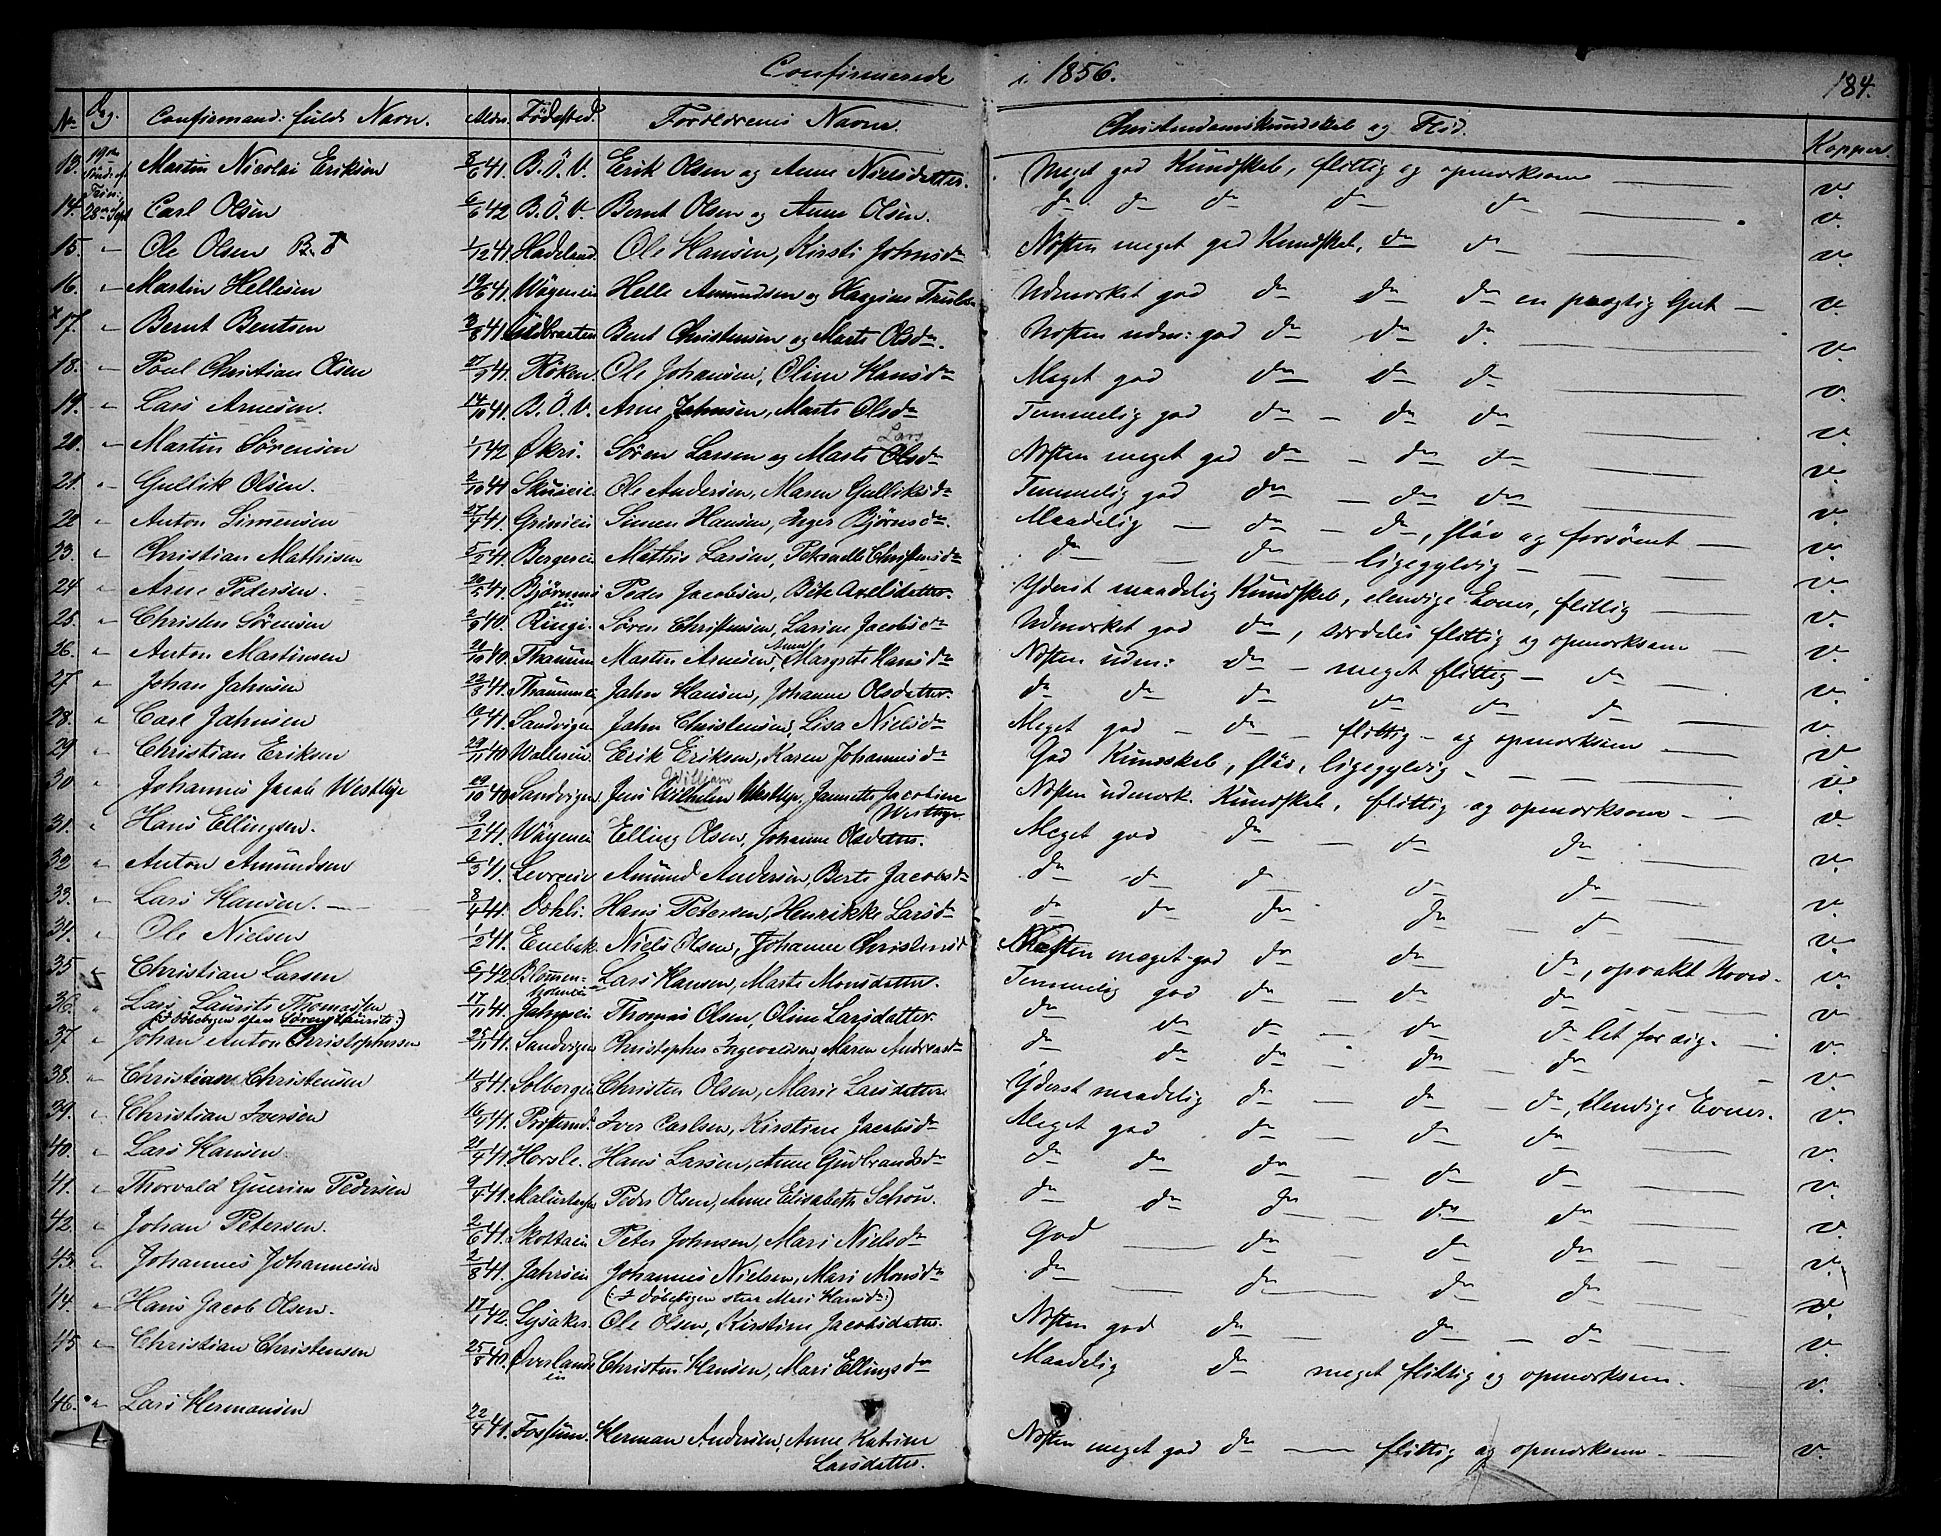 Confirmerede i 1856. 184.
No Dag. Confirmand: fulde Navn. Alder. Fødested. Forældrenes Navne. Christendomskundskab og Flid. Koppер.
13. 19de Martin Nicolai Eriksen 8/6 41. B.Ö.V. Erik Olsen og Anne Nielsdatter. Meget god Kundskab, flittig og opmærksom v.
14. 28de Sept Carl Olsen 6/6 42 B.Ö.V. Bernt Olsen og Anne Olsen. do do do do do v.
15. " Ole Olsen 1/12 41. Hadeland Ole Hansen, Kirsti Johnsdr Næsten meget god Kundskab, do do v.
16. " Martin Hellesen 19/6 41. Wøyeneie Helle Amundsen og Udmærket god do do do en prægtig Gut v.
17. " Bernt Bentsen 3/8 41 Bent Christensen og Marte Olsdr. Næsten udm: god do do do v.
18. " Poul Christian Olsen 27/9 41. Røken. Ole Johansen, Oline Hansdr Meget god do do do v.
19. " Lars Arnesen. 14/10 41. B.Ö.V. Arne Johnsen, Marte Olsdr Temmelig god do do do v.
20. " Martin Sørensen 1/1 42 Økri. Søren Larsen og Marte Olsdr Lars Næsten meget god do do do v.
21. " Gullik Olsen. 2/10 41 Skuieie. Ole Andersen, Maren Gulliksdr Temmelig god do do do v.
22 " Anton Simensen 27/4 41. Grinieie Simen Hansen, Inger Bjørnsdr. Maadelig do do, sløv og forsömt v.
23. " Christian Mathisen 5/2 41. Bergeeie Mathis Larsen, Petronelle Christensdr do do ligegyldig v.
24 " Arne Pedersen. 20/5 41. Bjørnumseie Peder Jacobsen, Birte Axelsdatter. Yderst maadelig Kundskab, elendige Evner, flittig v.
25. " Christen Sørensen 2/9 40. Ringi. Søren Christensen, Larine Jacobsdr Udmærket god do, særdeles flittig og opmærksom v.
26. " Anton Martinsen 21/10 40. Martin Arnesen, Anne Margrete Hansdr Næsten udm: do meget flittig do v.
27 " Johan Jahnsen 22/3 41. Jahn Hansen, Johanne Olsdatter. do do do do do do v.
28. " Carl Jahnsen 41. Sandvigen Jahn Christensen, Lisa Nielsdr Meget god do flittig og opmærksom v.
29 " Christian Eriksen 29/11 40 Erik Eriksen, Karen Johannesdr God Kundskab, sløv, ligegyldig v.
30 " Johannes Jacob Westbye 29/10 40 Sandvigen Jens Wilhelm William Westbye, Jannette Jacobine Westbye Næsten udmærk. Kundskab, flittig og opmærksom v.
31. " Hans Ellingsen. 9/2 41. Wøyeneie Elling Olsen, Johanne Olsdatter. Meget god do do do v.
32 " Anton Amundsen 6/3 41. Levreeie Amund Andersen, Berte Jacobsdr do do do do do v.
33. " Lars Hansen. 8/4 41. Dæhli. Hans Petersen, Henrikke Larsdr do do do do do v.
34. " Ole Nielsen 1/2 41. Enebak Niels Olsen, Johanne Christensd Næsten meget god do do do, opvakt Hoved v.
35 " Christian Larsen 6/1 42. Lars Hansen, Marte Monsdatter. Temmelig god do do do v.
36. " Lars Laurits Thomassen (:I Döbebogen staar Sören Laurits:) 17/11 41. Jahrseie Thomas Olsen, Oline Larsdatter do do do do do let for sig. v.
37 " Johan Anton Christophersen 25/11 41. Sandvigen Christopher Ingevaldsen, Maren Andreasdr do do do do do v.
38. " Christian Christensen 11/3 41. Solbergeie Christen Olsen, Marie Larsdatter Yderst maadelig do do do, Elendige Evner. v.
39. " Christian Iversen 16/4 41. Iver Carlsen, Kirstine Jacobsdr Meget god do do do v.
40. " Lars Hansen. 21/4 41. Horsle. Hans Larsen, Anne Gudbrandsdr do do do do do v.
41. " Thorvald Guerin Pedersen 9/4 41. Peder Olsen, Anne Elisabeth Schou. do do do do do v.
42. " Johan Petersen. 2/6 41. Skottaeie Peter Johnsen, Mari Nielsdr God do do do v.
43. " Johannes Johannesen 2/8 41. Jahrseie Johannes Nielsen, Mari Monsdr (:I Döbebogen staar Mari Hansdr:) do do do do v.
44. " Hans Jacob Olsen. 17/1 42. Lysaker Ole Olsen, Kirstine Jacobsdatter. Næsten god do do do v.
45 " Christian Christensen 25/8 40. Øverlandseie Christen Hansen, Mari Ellingsdr Maadelig do meget flittig og opmærksom. v.
46. " Lars Hermansen 22/4 41. Fossum. Herman Andersen, Anne Katrine Larsdatter. Næsten meget god do flittig og opmærksom v.